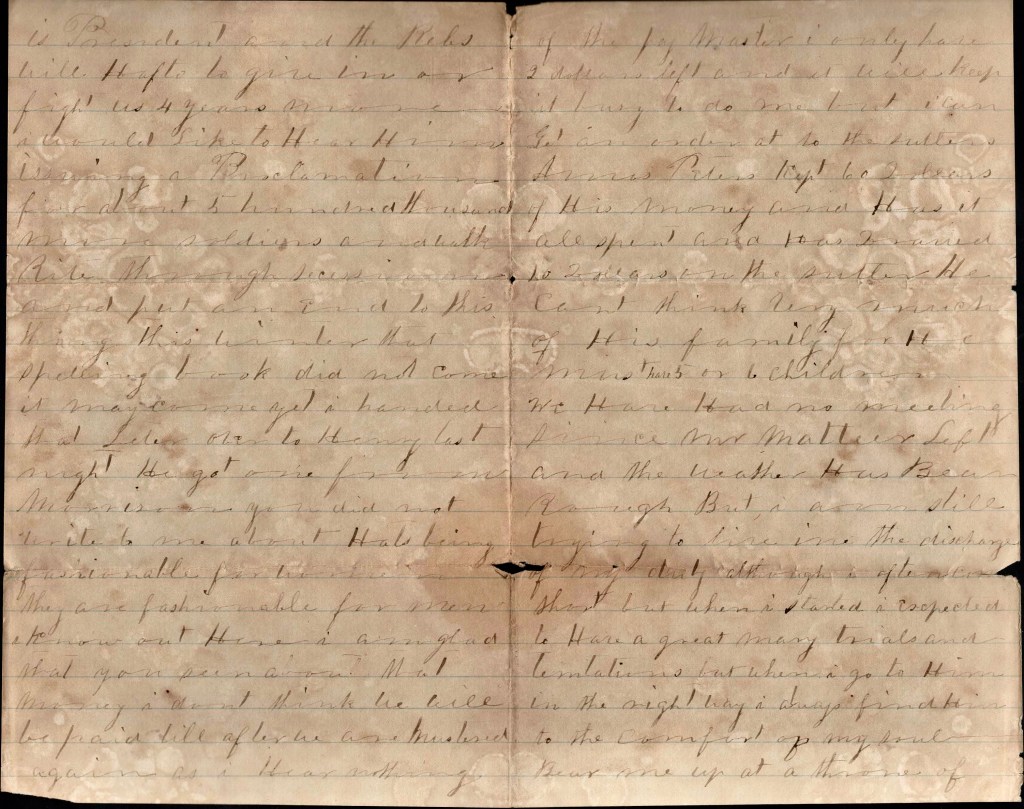 is President and the Rebs
will Hafto to give in or
fight us 4 years more
i would Like to Hear Him
issuing a Proclamation
for about 5 hundred thousand
more soldiers and walk
Rite through secession
and put an end to this
thing this winter that
spelling book did not come
it may come yet i handed
that Leter over to Henry last
night He got one from
Morrison you did not
write to me about Hats being
fashionable for
they are fashionable for men
know out Here i am glad
that you seen about that
money i dont think we will
be paid till after we are Mustered
again as i Hear nothing
of the pay Master i only have
2 dollars left and it will keep
it busy to do me but i can
Get an order at to the sutlers
Amos Peters Kept 60 2 dears
of His money and Has it
all spent and Has
10 2 dears on the sutler He
Cant think very much
of His family for He
Must have 5 or 6 children
We Have Had no meeting
Since Mr Matter Left
and the weather Has Bean
Rough But i am still
trying to live in the discharge
of my duty although i often com
short but when i started i exspected
to Have a great many trials and
temtations but when i go to Him
in the right way i always find Him
to the comfort of my soul
Bear me up at a throne of